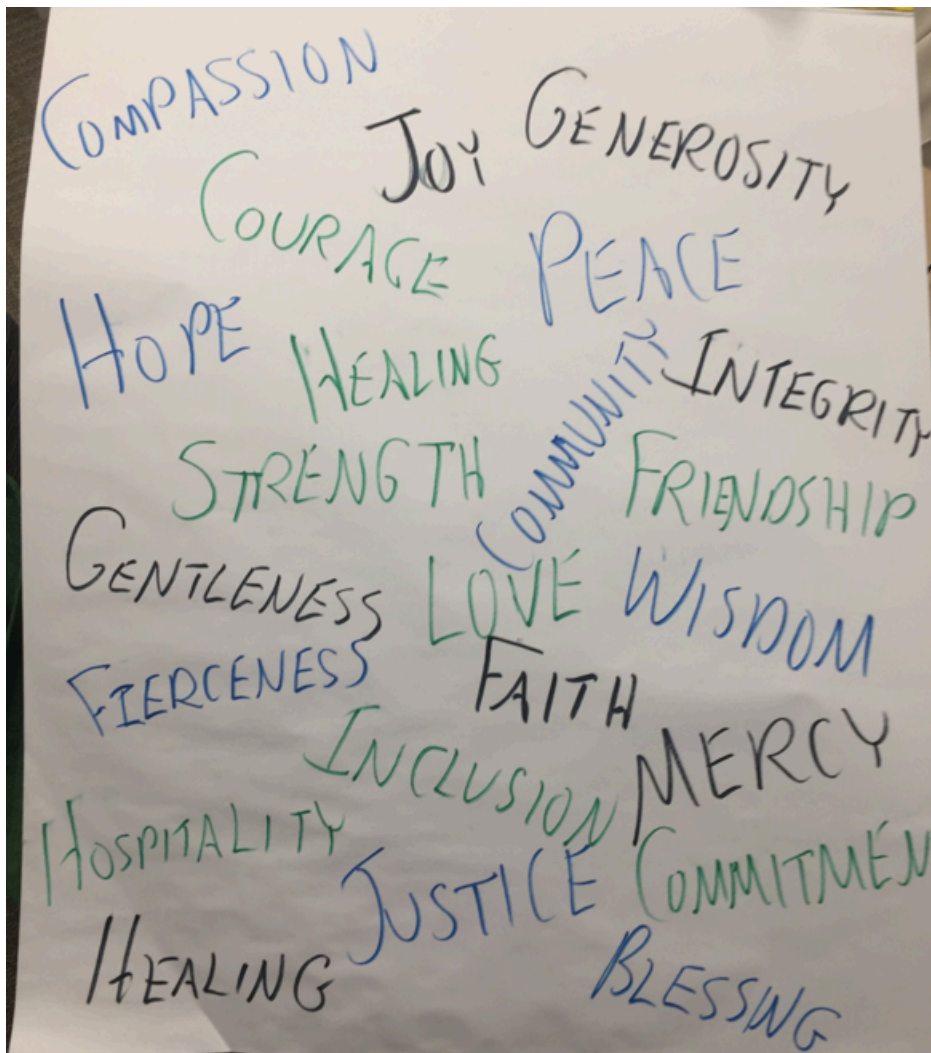 COMPASSION
JOY
GENEROSITY
COURAGE
PEACE
HOPE
HEALING
COMMUNITY
INTEGRITY
STRENGTH
FRIENDSHIP
GENTLENESS
LOVE
WISDOM
FIERCENESS
FAITH
INCLUSION
MERCY
HOSPITALITY
JUSTICE
COMMITMEN
HEALING
BLESSING